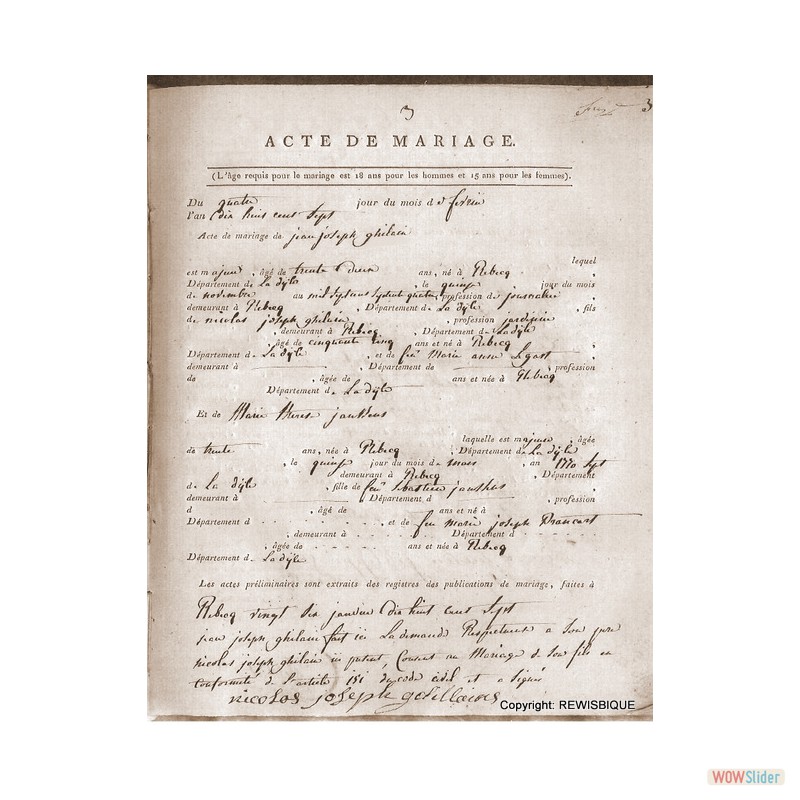 3
3
ACTE DE MARIAGE.
(L'âge requis pour le mariage est 18 ans pour les hommes et 15 ans pour les femmes).
Du quatre jour du mois de fevrier
l'an dix huit cent sept
Acte de mariage de jean joseph ghilain
lequel
est majeur, âgé de trente deux ans, né à Rebecq,
Département de La dÿle, le quinze jour du mois
de novembre au mil sept cens septente quatre, profession de journalier
demeurant à Rebecq, Département de La dÿle, fils
de nicolas joseph ghilain, profession jardinier
, demeurant à Rebecq, Département de La dÿle
, âgé de cinquante cinq ans et né à Rebecq,
Département de La dÿle, et de feu Marie anne Legast,
demeurant à Département de , profession
de , âgée de ans et née à Rebecq
Département de La dÿle
Et de Marie Therese janssens
laquelle est majeure, âgée
de trente ans, née à Rebecq, Département de La dÿle
, le quinze jour du mois de mars, an 1770 sept
demeurant à Rebecq, Département
de La dÿle, fille de feu sebastien janssens,
demeurant à Département d , profession
d , âgé de ans et né à
Département d , et de feu marie joseph Brancart
, demeurant à Département d
, âgée de ans et née à Rebecq
Département de La dÿle
Les actes préliminaires sont extraits des registres des publications de mariage, faites à
Rebecq vingt six janvier dix huit cent sept
jean joseph ghilain fait ici La demande Respectueuse a Son pere
nicolas joseph ghilain ici present, Consent au Mariage de Son fils en
conformité de l'article 151 du code civil et a signé
nicolas joseph
Copyright: REWISBIQUE
WOWSlider